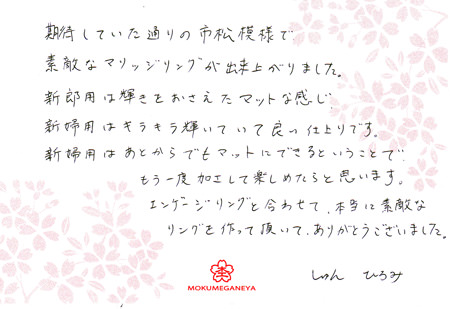 期待していた通りの市松模様で
素敵なマリッジリングが出来上がりました。
新郎用は輝きをおさえたマットな感じ
新婦用はキラキラ輝いていて良い仕上りです。
新婦用はあとからでもマットにできるということで
もう一度加工して楽しめたらと思います。
エンゲージリングと合わせて、本当に素敵な
リングを作って頂いて、ありがとうございました。
しゅん ひろみ
MOKUMEGANEYA